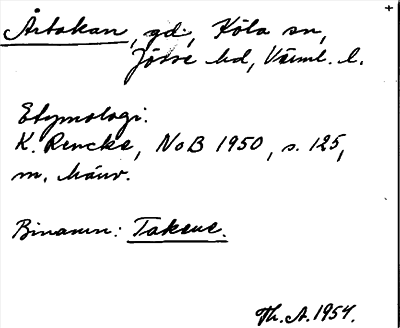 Årtakan, gd, Köla sn,
Jösse hd, Värml. l.
Etymologi:
K. Rencke, NoB 1950, s. 125,
m. hänv.
Binamn: Takene.
Th. A. 1954.